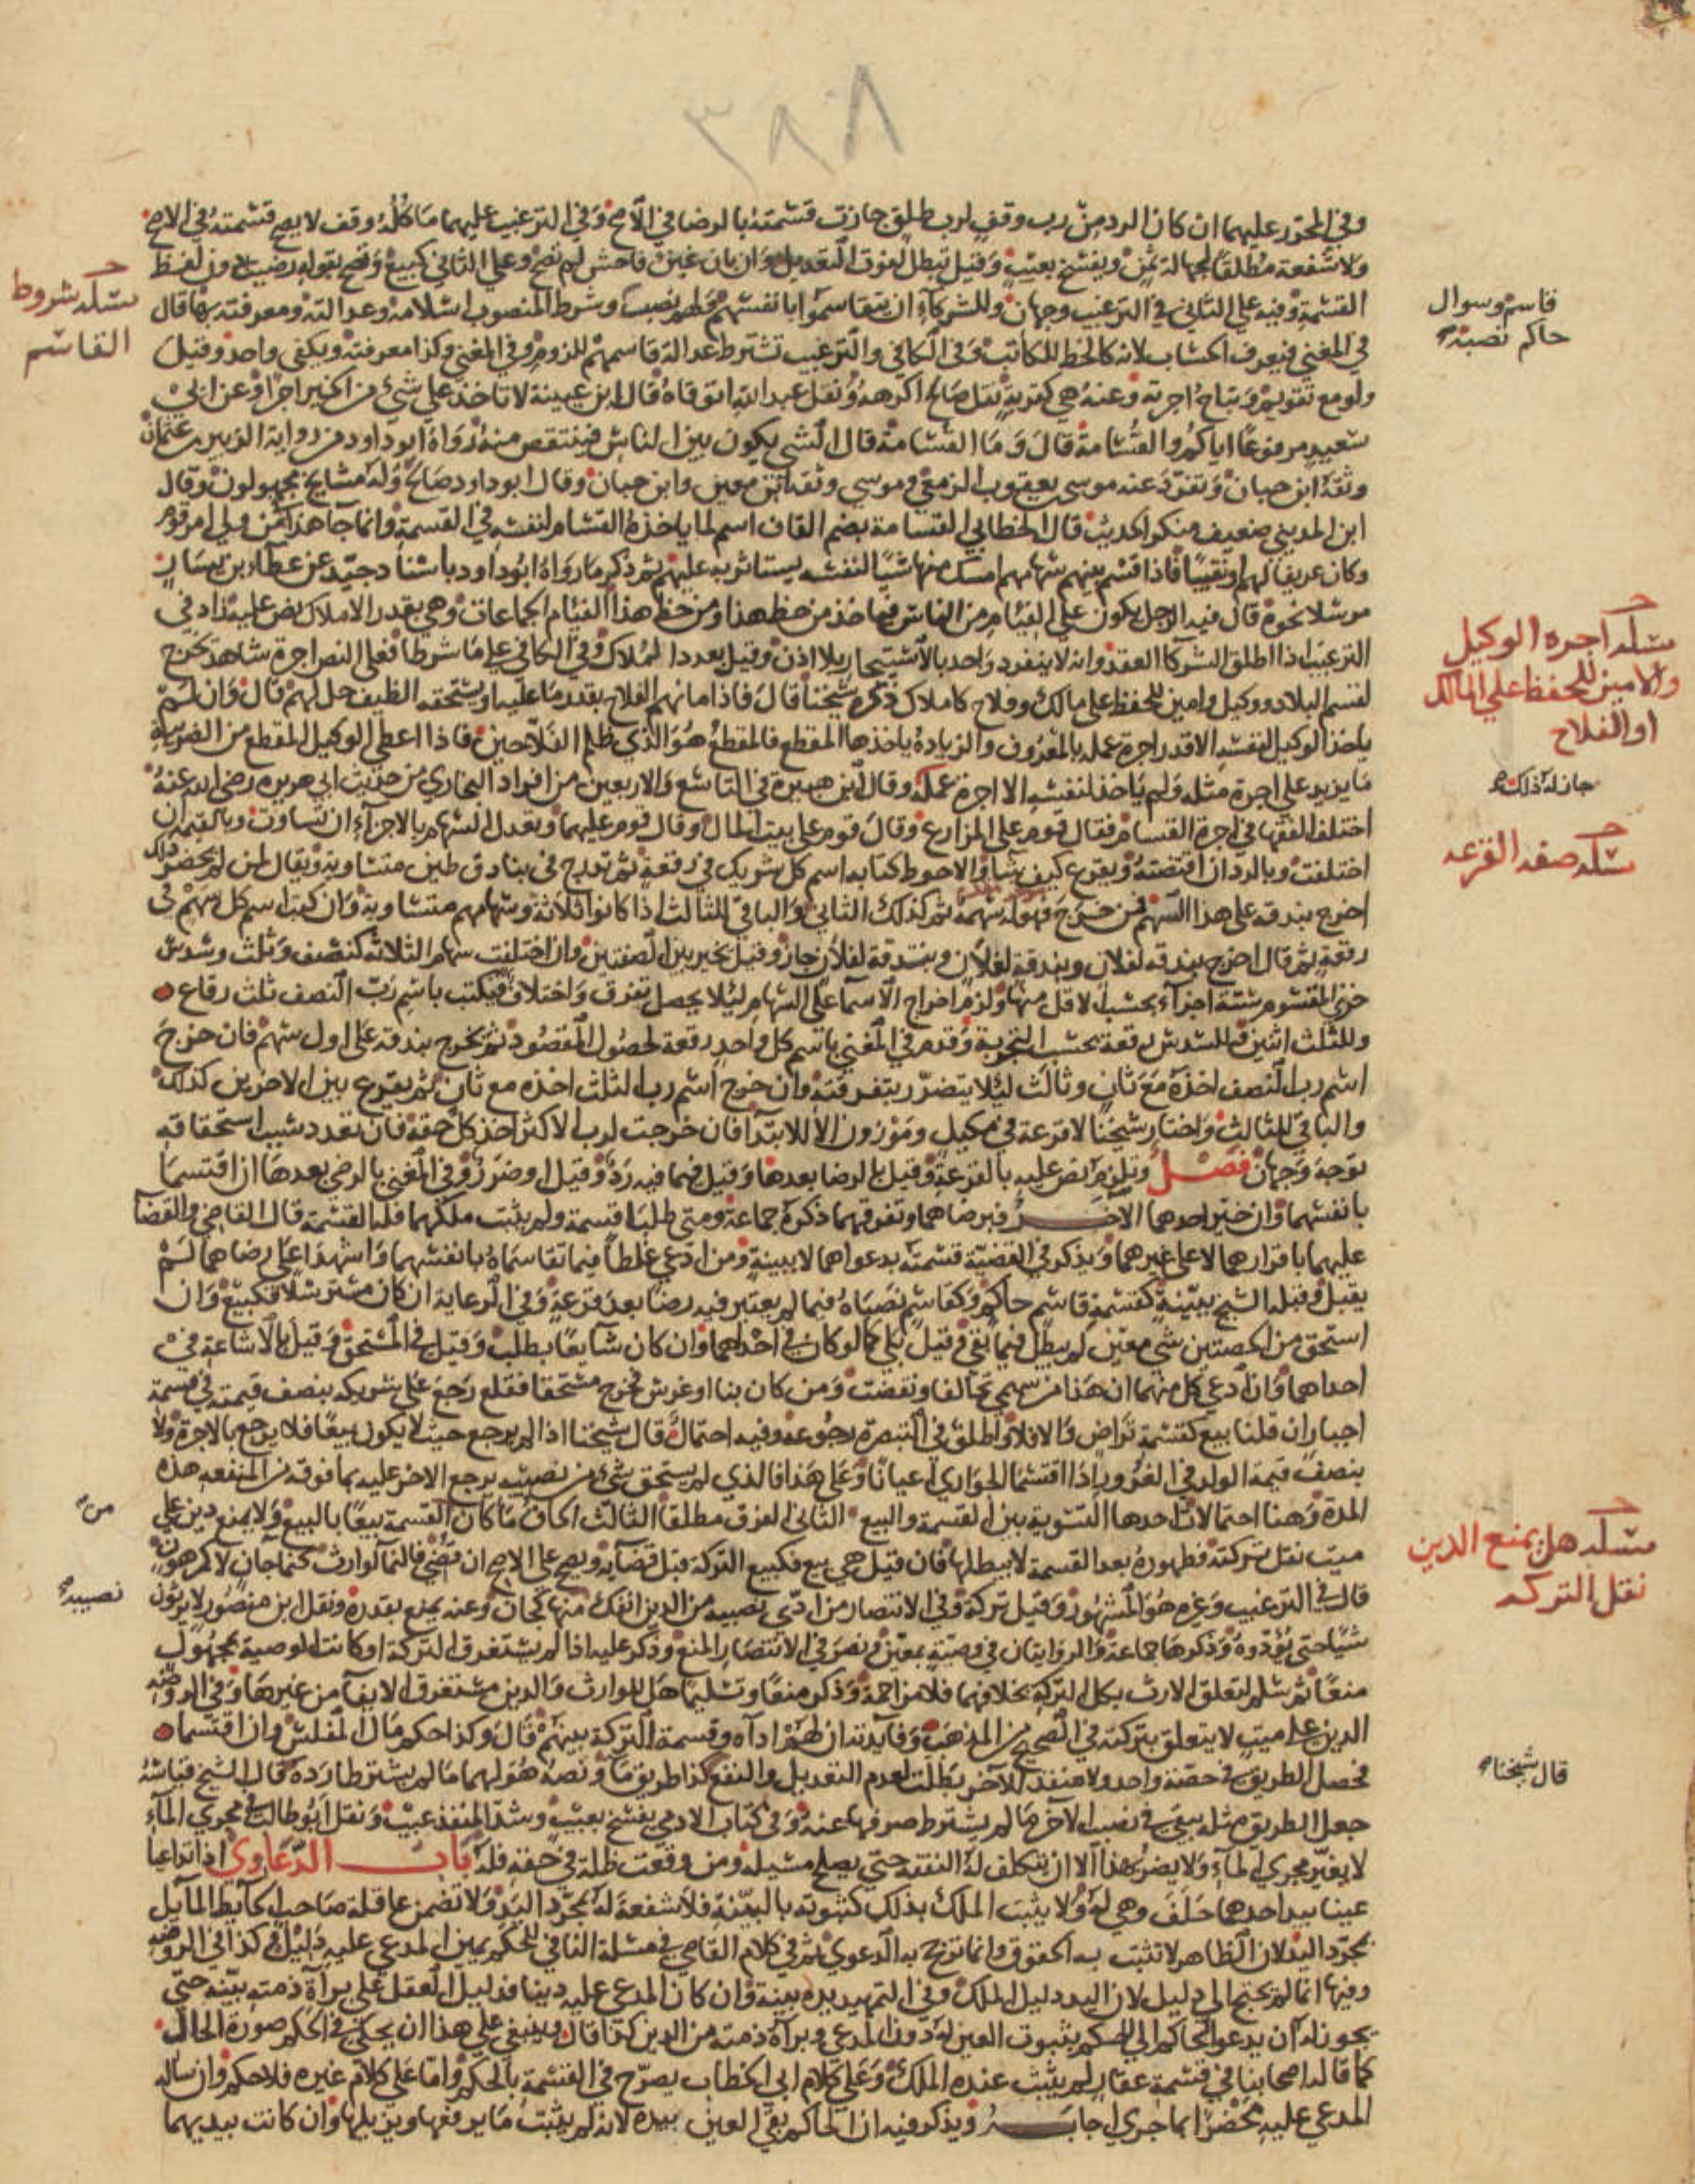 ٣٩٨
وفي المحرر عليهما ان كان الرد من رب وقف لرب طلق جازت قسمته بالرضا في الاصح وفي الترغيب عليهما ما كله وقف لا يصح قسمته في الاصح
ولا شفعة مطلقا لجهالة ثمن ويفسخ بعيب وقيل تبطل لفوت التعديل وان بان غبن فاحش لم تصح وعلى الثاني كبيع وتصح بقوله رضيت دون لفظ
القسمة وفيه على الثاني في الترغيب وجهان وللشركاء ان يتقاسموا بانفسهم وشرط المنصوب اسلامه وعدالته ومعرفته بها قال
في المغني فيعرف الحساب لانه كالخط للكاتب وفي الكافي والترغيب تشترط عدالة قاسمهم للزوم وفي المغني وكذا معرفته ويكفي واحد وقيل
ولو مع تقويم وتباح اجرته وعنه هي كقربة نقل صالح اكرهه ونقل عبد الله اتوقاه قال ابن عيينة لا تاخذ على شيء من الخير اجرا وعن ابي
سعيد مرفوعا اياكم والقسامة قال وما القسامة قال الشي يكون بين الناس فينتقص منه رواه ابو داود من رواية الزبير بن عثمان
وثقه ابن حبان وتفرد عنه موسى بن يعقوب الزمعي وموسى وثقه ابن معين وابن حبان وقال ابو داود صالح وله مشايخ مجهولون وقال
ابن المديني ضعيف منكر الحديث قال الخطابي القسامة بضم القاف اسم لما ياخذه القسام لنفسه في القسمة وانما جا هذا فمن ولي امر قوم
وكان عريفا لهم او نقيبا فاذا قسم بينهم سهامهم امسك منها شيا لنفسه يستاثر به عليهم ثم ذكر ما رواه ابو داود باسناد جيد عن عطاء بن يسار
مرسلا نحوه قال فيه الرجل يكون على الفئام من الناس فياخذ من حظ هذا ومن حظ هذا الفئام الجماعات وهي بقدر الاملاك نص عليه زاد في
الترغيب اذا اطلق الشركا العقد وانه لا ينفرد واحد بالاستيجار بلا اذن وقيل بعدد الملاك وفي الكافي على ما شرطا فعلى النص اجرة شاهد تخرج
لقسم البلاد ووكيل وامين للحفظ على مالك وفلاح كاملاك ذكره شيخنا قال فاذا مانهم الفلاح بقدر ما عليه او يستحقه الضيف حل لهم قال وان لم
ياخذ الوكيل لنفسه الا قدر اجرة عمله بالمعروف والزيادة ياخذها المقطع فالمقطع هو الذي ظلم الفلاحين فاذا اعطى الوكيل المقطع من الضريبة
ما يزيد على اجرة مثله ولم ياخذ لنفسه الا اجرة عمله وقال ابن هبيرة في التاسع والاربعين من افراد البخاري من حديث ابي هريرة رضي الله عنه
اختلف الفقها في اجرة القسام فقال قوم على المزارع وقال قوم على بيت المال وقال قوم عليهما وتعدل السهام بالاجزاء ان تساوت وبالقيمة ان
اختلفت وبالرد ان اقتضته ويقرع كيف شاؤا والاحوط كتابة اسم كل شريك في رقعة ثم تدرج في بنادق طين متساوية ويقال لمن لم يحضر ذلك
اخرج بندقة على هذا السهم فمن خرج فهو له سهمه ثم كذلك الثاني والباقي للثالث اذا كانوا ثلاثة وسهامهم متساوية وان كتب اسم كل سهم في
رقعة ثم قال اخرج بندقة لفلان وبندقة لفلان وبندقة لفلان جاز وقيل يخير بين الصفتين وان اختلفت سهام الثلاثة كنصف وثلث وسدس
جزئ المقسوم ستة اجزاء بحسب الاقل منها ولزم اخراج الاسما على السهام ليلا يحصل تفرق واختلاف فيكتب باسم رب النصف ثلث رقاع
وللثلث اثنين وللسدس رقعة بحسب التجزية وقدم في المغني باسم كل واحد رقعة لحصول المقصود ثم يخرج بندقة على اول سهم فان خرج
اسم رب النصف اخذه مع ثان وثالث ليلا يتضرر بتفرقته وان خرج اسم رب الثلث اخذه مع ثان ثم يقرع بين الاخرين كذلك
والباقي للثالث واختار شيخنا لا قرعة في مكيل وموزون الا للابتداء فان خرجت لرب الاكثر اخذ كل حقه فان تعدد سبب استحقاقه
توجه وجهان فصل وتلزم نص عليه بالقرعة وقيل بالرضا بعدها وقيل فيما فيه رد وقيل او ضرر وفي المغني بالرضى بعدها ان اقتسما
بانفسهما وان خير احدهما الاخر فبرضاهما وتفرقهما ذكره جماعة ومتى طلبا قسمة ولم يثبت ملكهما فله القسمة قال القاضي والقضا
عليهما باقرارهما لا على غيرهما ويذكر في القضية قسمته بدعواهما لا ببينة ومن ادعى غلطا فيما تقاسماه بانفسهما واشهدا على رضاهما لم
يقبل وقبله الشيخ ببينة كقسمة قاسم حاكم وكقاسم نصباه فيما لم يعتبر فيه رضا بعد قرعة وفي الرعاية ان كان مسترسلا فكبيع وان
استحق من الحصتين شي معين لم يبطل فيما بقي وقيل بلى كما لو كان في احداهما وان كان شايعا بطلت وقيل في المستحق وقيل بالاشاعة في
احداهما وان ادعى كل منهما ان هذا من سهمي تحالفا ونقضت ومن كان بنا او غرس فخرج مستحقا فقلع رجع على شريكه بنصف قيمته في قسمة
اجبار ان قلنا بيع كقسمة تراض والا فلا واطلق في التبصرة رجوعه وفيه احتمال قال شيخنا اذا لم يرجع حيث لا يكون بيعا فلا يرجع بالاجرة ولا
بنصف قيمة الولد في الغرور اذا اقتسما الجواري اعيانا وعلى هذا فالذي لم يستحق شي من نصيبه يرجع الاخر عليه بما فوقه من المنفعة هذه
المدة وهنا احتمالات احدها التسوية بين القسمة والبيع الثاني الفرق مطلقا الثالث الحاق ما كان القسمة بيعا بالبيع ولا يمنع دين على
ميت نقل تركته فظهوره بعد القسمة لا يبطلها فان قيل هي بيع فكبيع التركة قبل قضايه ويصح على الاصح ان قضي فالنما لوارث كنما جان لا كمرهون
قال في الترغيب وغيره هو المشهور وقيل تركة وفي الانتصار من ادى نصيبه من الدين انفك منها كجان وعنه يمنع بقدره ونقل ابن منصور لا يرثون
شيا حتى يؤدوه وذكرها جماعة والروايتان في وصية بمعين ونصر في الانتصار المنع وذكر عليه اذا لم يستغرق التركة او كانت الوصية بمجهول
منعا ثم سلم لتعلق الارث بكل التركة بخلافهما فلا مزاحمة وذكر منعا وتسليما هل للوارث والدين مستغرق الايفا من غيرها وفي الروضة
الدين على ميت لا يتعلق بتركته في الصحيح من المذهب وفايدته ان لهم اداه وقسمة التركة بينهم قال وكذا حكم مال المفلس وان اقتسما
فحصل الطريق في حصة واحد ولا منفذ للاخر بطلت لعدم التعديل والنفع كذا طريق ما ونصه هو لهما ما لم يشترطا رده قال الشيخ قياسه
جعل الطريق مثله يبقى في نصيب الاخر ما لم يشترط صرفها عنه وفي كتاب الادمي يفسخ بعيب وسد المنفذ عيب ونقل ابو طالب في مجرى الماء
لا يغير مجرى الماء ولا يضر بهذا الا ان يتكلف له النفقة حتى يصلح مسيله ومن وقعت ظلة في حقه فله باب الدعاوي اذا تداعيا
عينا بيد احدهما حلف وهي له ولا يثبت الملك بذلك كثبوته بالبينة فلا شفعة له بمجرد اليد ولا تضمن عاقلة صاحب الحايط المايل
بمجرد اليد لان الظاهر لا تثبت به الحقوق وانما ترجح به الدعوى ثم في كلام القاضي في مسئلة النافي للحكم يمين المدعى عليه دليل وكذا في الروضة
وفيها انما لم يحتج الى دليل لان اليد دليل الملك وفي التمهيد يده بينة وان كان المدعى عليه دينا فدليل العقل على براءة ذمته بينة حتى
يجوز له ان يدعو الحاكم الى الحكم بثبوت العين له دون المدعي وبراءة ذمته من الدين كذا قال وينبغي على هذا ان يحكي في الحكم صورة الحال
كما قاله اصحابنا في قسمة عقار لم يثبت عنده الملك وعلى كلام ابي الخطاب يصرح في القسمة بالحكم واما على كلام غيره فلا حكم وان ساله
المدعى عليه محضرا بما جرى اجابه ويذكر فيه ان الحاكم بقى العين بيده لانه لم يثبت ما يرفعها ويزيلها وان كانت بيديهما
مسئلة شروط
القاسم
قاسم وسوال
حاكم نصبه
مسئلة اجرة الوكيل
والامين للحفظ على المالك
او الفلاح
جاز له ذلك
مسئلة صفة القرعة
من
مسئلة هل يمنع الدين
نقل التركة
نصيبه
قال شيخنا